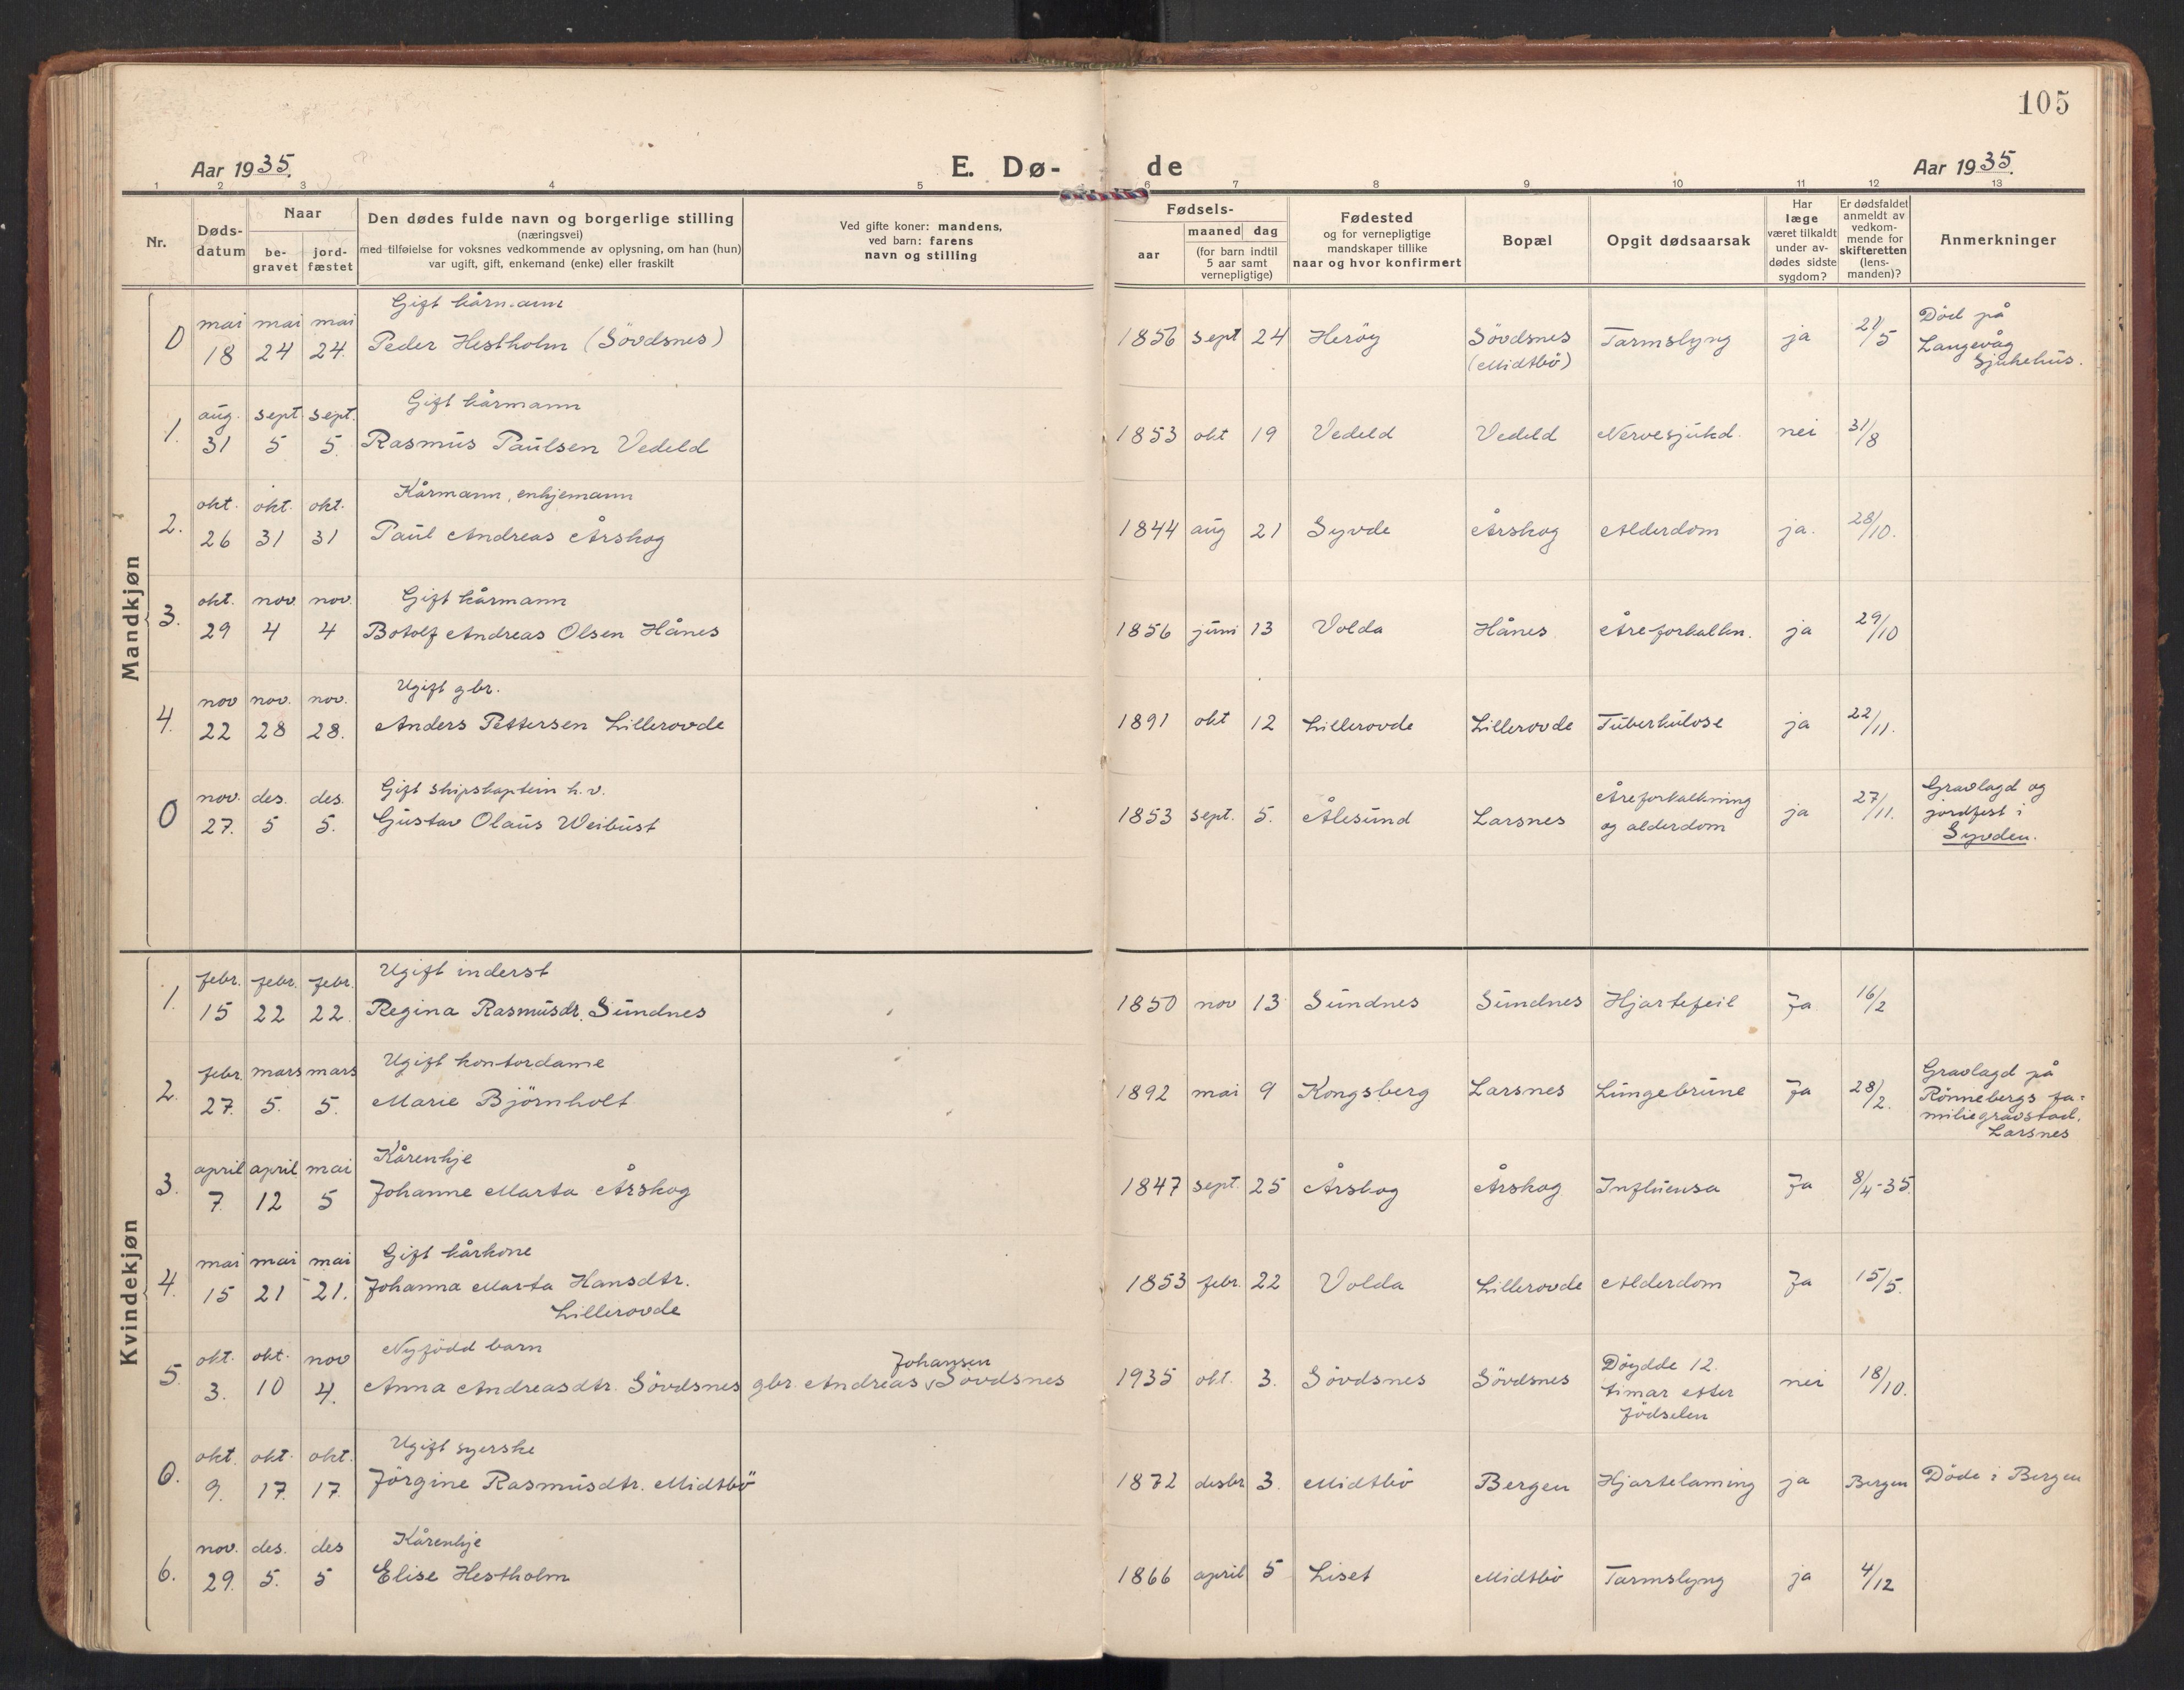 105
Aar 1935. E. Dø- de Aar 1935.
1 2 3 4 5 6 7 8 9 10 11 12 13
Nr.
Døds-
datum
Naar
be-
gravet
jord-
fæstet
Den dødes fulde navn og borgerlige stilling
(næringsvei)
med tilføielse for voksnes vedkommende av oplysning, om han (hun)
var ugift, gift, enkemand (enke) eller fraskilt
Ved gifte koner: mandens,
ved barn: farens
navn og stilling
Fødsels-
aar
maaned dag
(for barn indtil
5 aar samt
vernepligtige)
Fødested
og for vernepligtige
mandskaper tillike
naar og hvor konfirmert
Bopæl
Opgit dødsaarsak
Har
læge
været tilkaldt
under av-
dødes sidste
sygdom?
Er dødsfaldet
anmeldt av
vedkom-
mende for
skifteretten
(lens-
manden)?
Anmerkninger
Mandkjøn
Gift kårmann
0 mai 18 mai 24 mai 24. Peder Hestholm (Sövdsnes) 1856 sept 24 Heröy Sövdsnes (Midtbö) Tarmslyng ja 21/5 Död på
Langevåg
Sjukehus.
Gift kårmann
1. aug. 31 sept. 5 sept. 5. Rasmus Paulsen Vedeld 1853 okt 19 Vedeld Vedeld Nervesjukd. nei 31/8
Kårmann, enkjemann
2. okt. 26 okt. 31 okt. 31 Paul Andreas Årskog 1844 aug 21 Syvde Årskog Alderdom ja. 28/10.
Gift kårmann
3. okt. 29 nov. 4 nov. 4 Botolf Andreas Olsen Hånes 1856 juni 13 Volda Hånes Åreforkalkn. ja 29/10
Ugift gbr.
4. nov 22 nov. 28 nov. 28. Anders Pettersen Lillerovde 1891 okt 12 Lillerovde Lillerovde Tuberkulose ja 22/11.
Gift skipskaptein h.v.
0 nov. 27. des. 5 des. 5. Gustav Olaus Weibust 1853 sept. 5. Ålesund Larsnes Åreforkalkning
og alderdom ja 27/11. Gravlagd og
jordfest i
Syvden.
Kvindekjøn
Ugift inderst
1. febr. 15 febr. 22 febr. 22. Regina Rasmusdt. Sundnes 1850 nov 13 Sundnes Sundnes Hjartefeil Ja 16/2
Ugift kontordame
2. febr. 27. mars 5. mars 5. Marie Björnholt 1892 mai 9 Kongsberg Larsnes Lungebrune Ja 28/2. Gravlagd på
Rönnebergs fa-
miliegravstad.
Larsnes
Kårenkje
3. april 7. april 12 mai 5 Johanne Marta Årskog 1847 sept. 25 Årskog Årskog Influensa Ja 8/4-35.
Gift kårkone
4. mai 15 mai 21 mai 21. Johanna Marta Hansdtr.
Lillerovde 1853 febr. 22 Volda Lillerovde Alderdom Ja 15/5.
Nyfödd barn
5. okt. 3. okt. 10 nov 4. Anna Andreasdtr. Sövdsnes gbr. Andreas Johansen Sövdsnes 1935 okt. 3. Sövdsnes Sövdsnes Döydde 12.
timar etter
födselen nei 18/10.
Ugift syerske
0. okt. 9. okt. 17. okt. 17. Jörgine Rasmusdtr. Midtbö 1872 desbr 3. Midtbö Bergen Hjartelaming ja Bergen Döde i Bergen
Kårenkje
6. nov. 29. des. 5. des 5 Elise Hestholm 1866 april 5 Liset Midtbö Tarmslyng ja 4/12